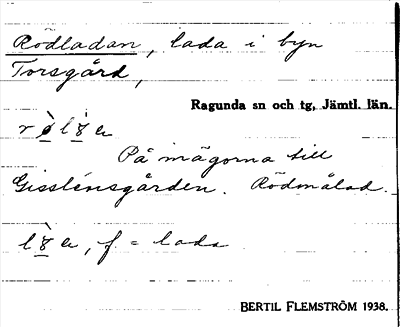 Rödladan, lada i byn
Torsgård,
Ragunda sn och tg, Jämtl. län.
På mågorna till
Gisslénsgården. Rödmålad.
f. = lada
BERTIL FLEMSTRÖM 1938.